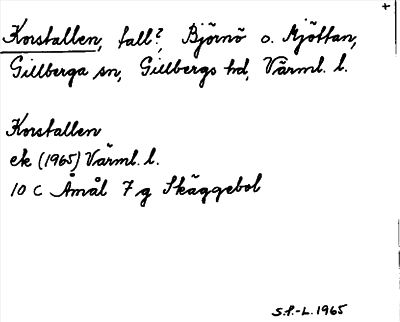 +
Korstallen, fall?, Björnö o. Mjöttan,
Gillberga sn, Gillbergs hd, Värml. l.
Korstallen
ek (1965) Värml. l.
10 C Åmål 7 g Skäggebol
S.F.-L. 1965